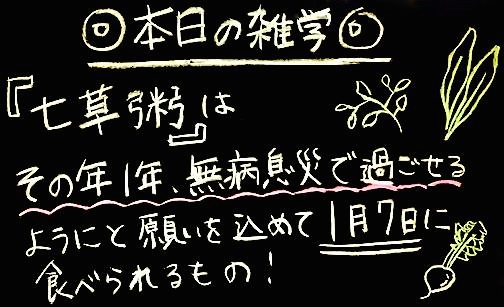 ◎本日の雑学◎
『七草粥』は
その年1年、無病息災で過ごせる
ようにと願いを込めて1月7日に
食べられるもの!